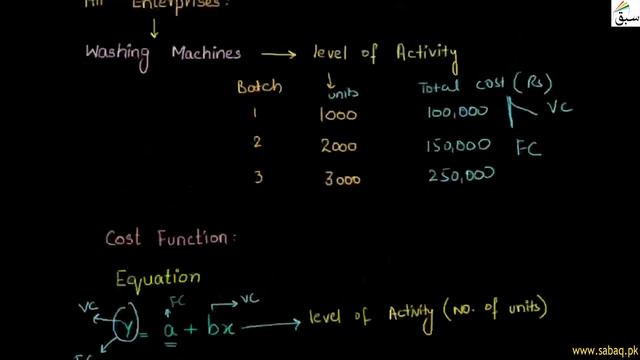 Enterprises:
سبق
Washing Machines → level of Activity
Batch units Total cost (Rs)
1 1000 100,000 VC
2 2000 150,000 FC
3 3000 250,000
Cost Function:
Equation
VC FC VC
Y = a + bx → level of Activity (No. of units)
FC
www.sabaq.pk